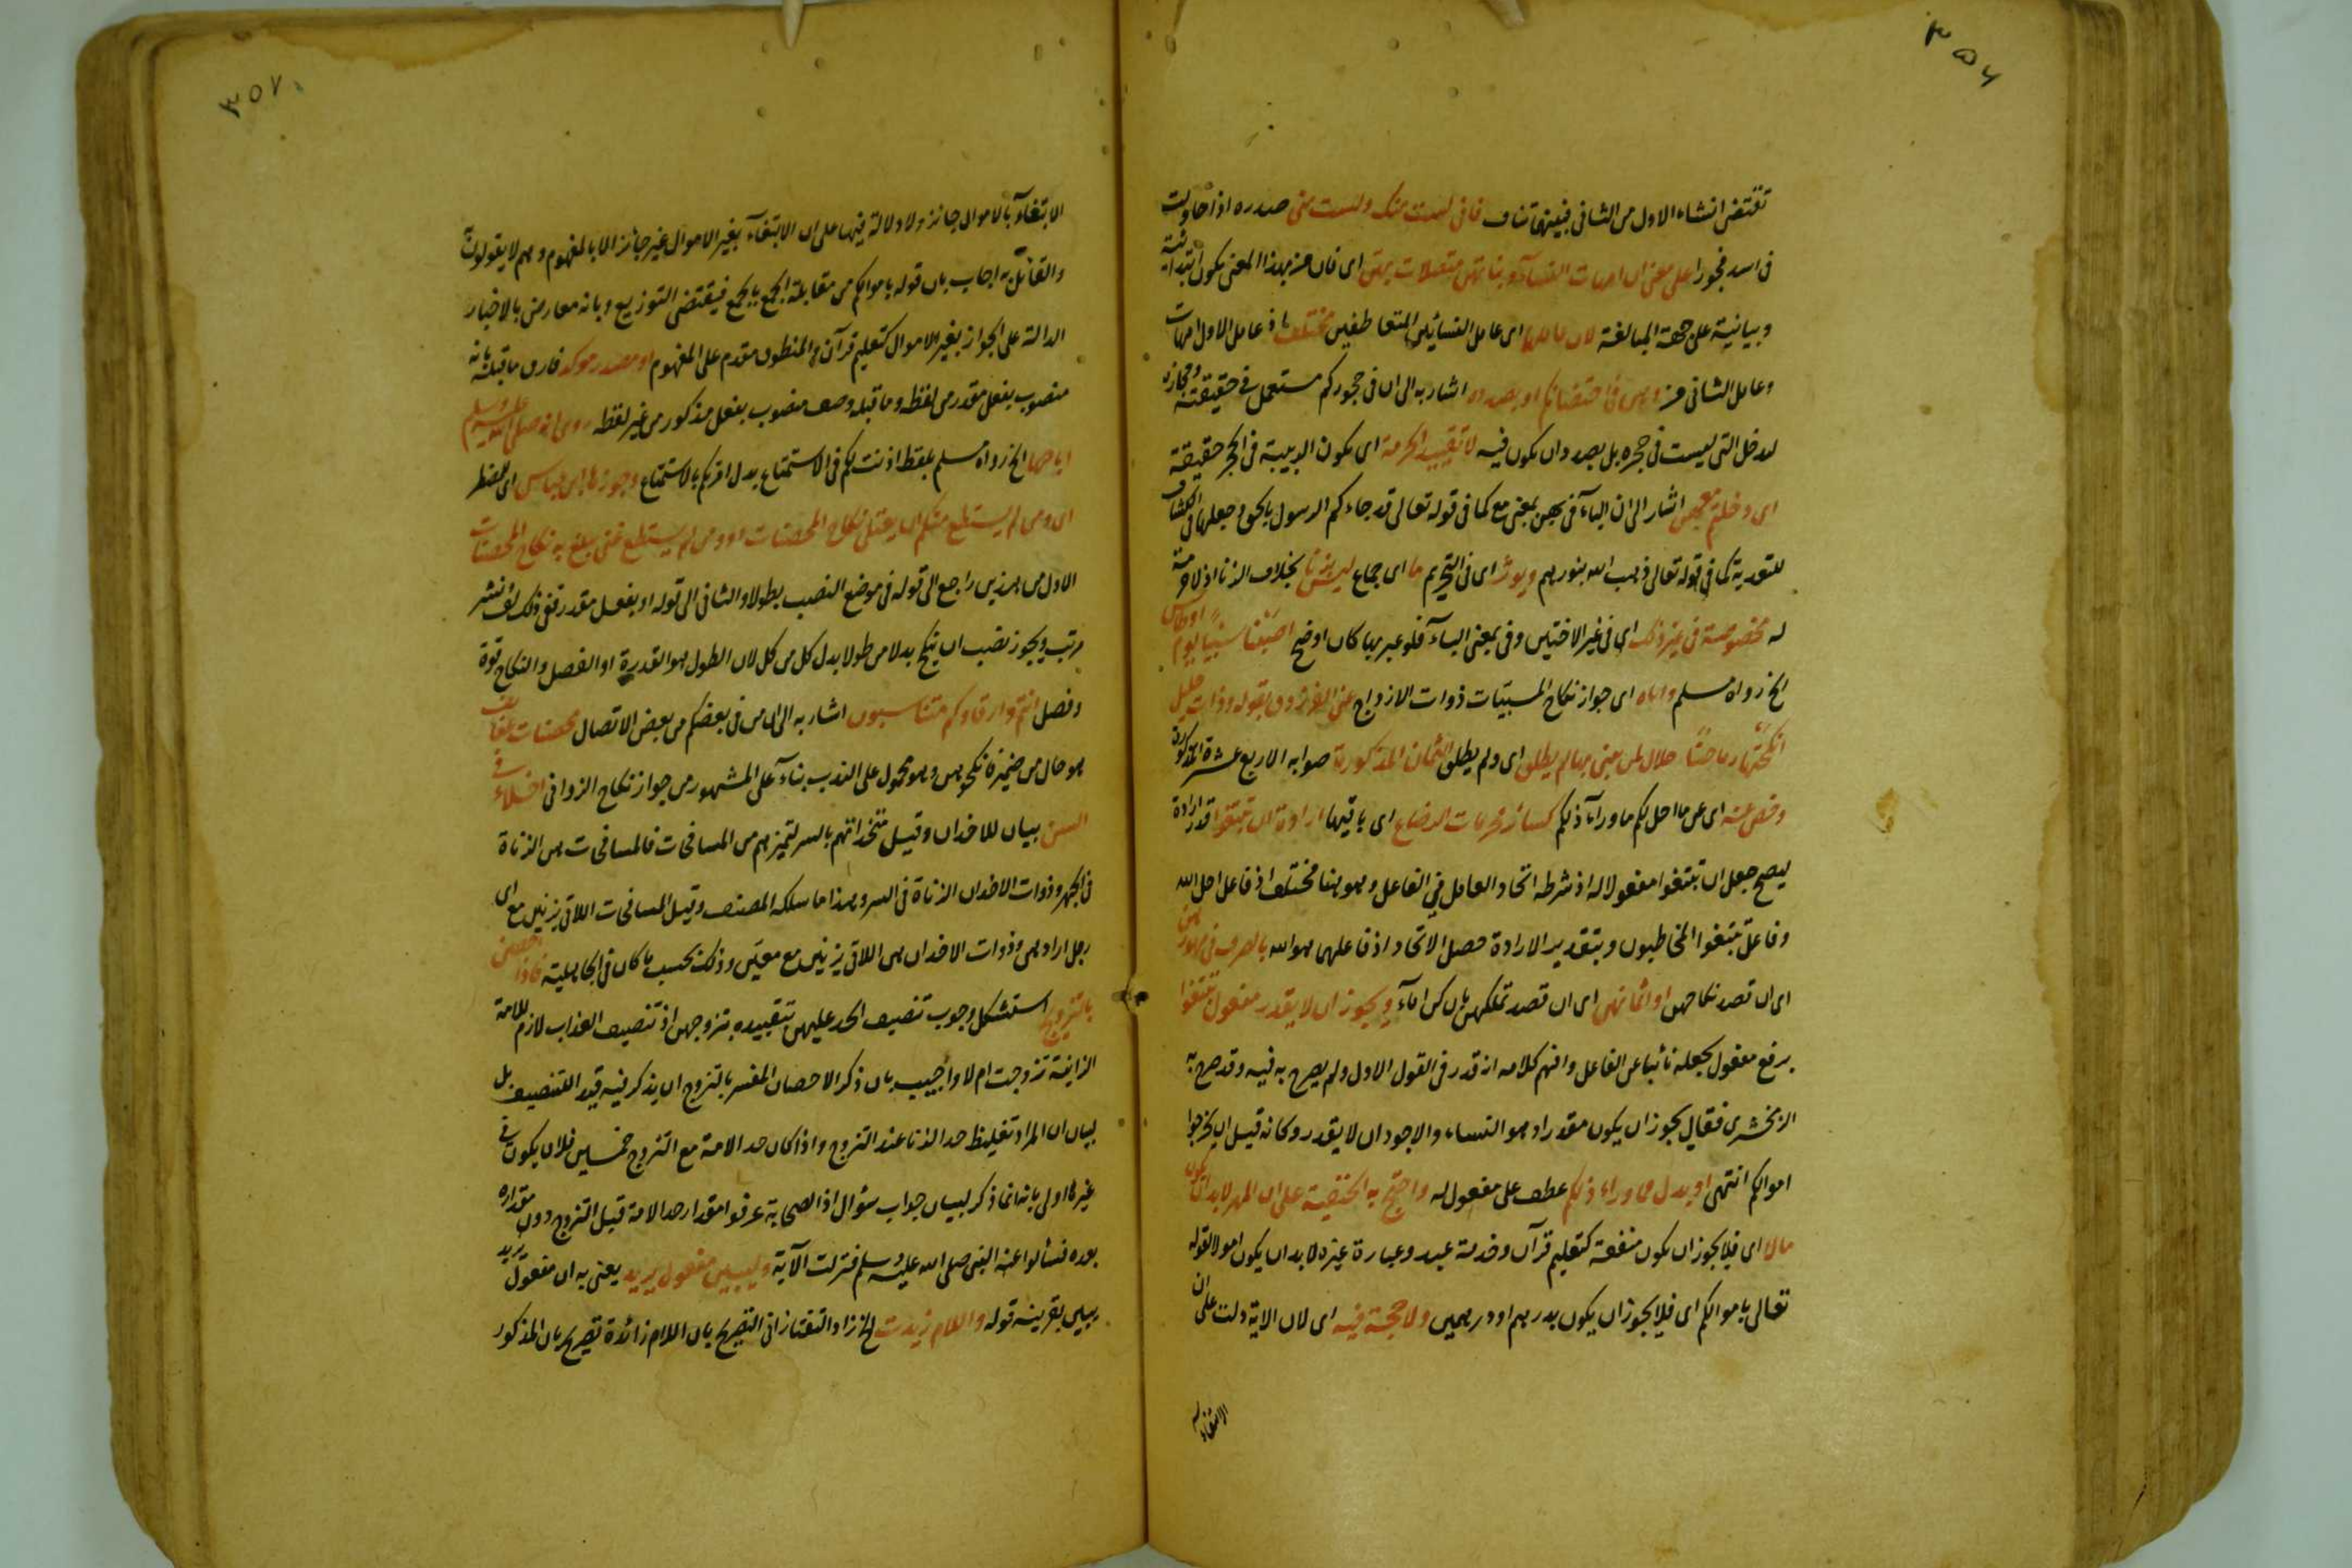 ٣٥٦
تقتضى انشاء الاول من الثانى فبينهما تناف فانى لست منك ولست منى صدره اذا حاولت
فى اسد فجورا على معنى ان امهات النساء وبناتهن متصلات بهن اى فان من بهذا المعنى يكون ابتدائية
وبيانية على جهة المبالغة لان عاملها اى عامل النسائين المتعاطفين مختلف اذ عامل الاول امهات
وعامل الثانى من وهن فى احتضانكم او بصدده اشار به الى ان فى حجوركم مستعمل فى حقيقته ومجازه
ليدخل التى ليست فى حجره بل بصدد ان يكون فيه لا تقييد الحرمة اى بكون الربيبة فى الحجر حقيقة
اى دخلتم معهن اشار الى ان الباء فى بهن بمعنى مع كما فى قوله تعالى قد جاءكم الرسول بالحق وجعلها فى الكشاف
للتعدية كما فى قوله تعالى ذهب الله بنورهم ويؤثر اى فى التحريم ما اى جماع ليس بزنا بخلاف الزنا اذ لا حرمة
له مخصوصة فى غير ذلك اى فى غير الاختين وفى بمعنى الباء فلو عبر بها كان اوضح اصبنا سبيا يوم اوطاس
الخ رواه مسلم واياه اى جواز نكاح المسبيات ذوات الازواج عنى الفرزدق بقوله وذات حليل
انكحتها رماحنا حلال لمن يبنى بها لم يطلق اى ولم يطلق الثمان المذكورة صوابه الاربع عشرة المذكورة
وخص عنه اى عن ما احل لكم ما وراء ذلكم كسائر محرمات الرضاع اى باقيها ارادة ان تبتغوا قدر ارادة
ليصح جعل ان تبتغوا مفعولا له اذ شرطه اتحاد العامل فى الفاعل وهو هنا مختلف اذ فاعل احل الله
وفاعل تبتغوا المخاطبون وبتقدير الارادة حصل الاتحاد اذ فاعلهما هو الله بالصرف فى مهورهن
اى ان قصد نكاحهن او اثمانهن اى ان قصد تملكهن بان كن اماء ويجوز ان لا يقدر مفعول تبتغوا
برفع مفعول بجعله نائبا عن الفاعل وافهم كلامه انه قدر فى القول الاول ولم يصرح به فيه وقد صرح به
الزمخشرى فقال يجوز ان يكون مقدرا وهو النساء والاجود ان لا يقدر وكانه قيل ان تخرجوا
اموالكم انتهى او بدل مما وراء ذلكم عطف على مفعول له واحتج به الحنفية على ان المهر لا بد ان يكون
مالا اى فلا يجوز ان يكون منفعة كتعليم قرآن وخدمة عبد وعبارة غيره لا بد ان يكون اموالا لقوله
تعالى باموالكم اى فلا يجوز ان يكون بدرهم او درهمين ولا حجة فيه اى لان الاية دلت على ان
الابتغاء
٣٥٧
الابتغاء بالاموال جائز ولا دلالة فيها على ان الابتغاء بغير الاموال غير جائز الا بالمفهوم وهم لا يقولون به
والقائل به اجاب بان قوله باموالكم من مقابلة الجمع بالجمع فيقتضى التوزيع وبانه معارض بالاخبار
الدالة على الجواز بغير الاموال كتعليم قرآن والمنطوق مقدم على المفهوم او مصدر موكد فارق ما قبله بانه
منصوب بفعل مقدر من لفظه وما قبله وصف منصوب بفعل مذكور من غير لفظه روى انه صلى الله عليه وسلم
اباحها الخ رواه مسلم بلفظ اذنت لكم فى الاستمتاع بدل امركم بالاستمتاع وجوزها ابن عباس اى للمضطر
اى ومن لم يستطع منكم ان يعتلى نكاح المحصنات او ومن لم يستطع غنى يبلغ به نكاح المحصنات
الاول من هذين راجع الى قوله فى موضع النصب بطولا والثانى الى قوله او بفعل مقدر ففى ذلك لف ونشر
مرتب ويجوز نصب ان ينكح بدلا من طولا بدل كل من كل لان الطول هو القدرة او الفضل والنكاح قوة
وفضل انتم وارقاوكم متناسبون اشار به الى ان من فى بعضكم من بعض الاتصال محصنات عفائف
هو حال من ضمير فانكحوهن وهو محمول على الندب بناء على المشهور من جواز نكاح الزوانى اخلاء فى
السر بيان للاخدان وقيل متخذاتهم بالسر لتميزهم من المسافحات فالمسافحات هن الزناة
فى الجهر وذوات الاخدان الزناة فى السر وهذا ما سلكه المصنف وقيل المسافحات اللاتى يزنين مع اى
رجل ارادهن وذوات الاخدان هن اللاتى يزنين مع معين وذلك بحسب ما كان فى الجاهلية فاذا احصن
بالتزويج استشكل وجوب تنصيف الحد عليهن بتقييده بتزوجهن اذ تنصيف العذاب لازم للامة
الزانية تزوجت ام لا واجيب بان ذكر الاحصان المفسر بالتزوج ان يذكر فيه قيد التنصيف بل
لبيان ان المراد تغليظ حد الزنا عند التزوج واذا كان حد الامة مع التزوج خمسين فلان يكون فى
غيره اولى بانه انما ذكر لبيان جواب سؤال اذ الصحابة عرفوا مقدار حد الامة قبل التزوج دون مقداره
بعده فسألوا عنه النبى صلى الله عليه وسلم فنزلت الآية وليبين مفعول يريد يعنى به ان مفعول يريد
يبين بقرينة قوله واللام زيدت الخ زاد التفتازانى التصريح بان اللام زائدة تصريح بان المذكور